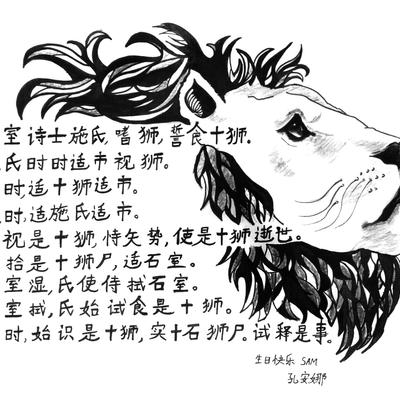 室诗士施氏,嗜狮,誓食十狮。
氏时时适市视狮。
时,适十狮适市。
时,适施氏适市。
视是十狮,恃矢势,使是十狮逝世。
拾是十狮尸,适石室。
室湿,氏使侍拭石室。
室拭,氏始试食是十狮。
时,始识是十狮,实十石狮尸。试释是事。
生日快乐 SAM
孔安娜